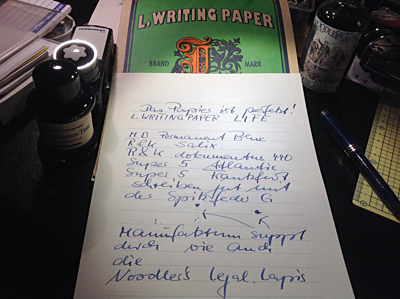 L. WRITING PAPER
BRAND
MARK
PERMANENT
Das Papier ist perfekt!
L. WRITING PAPER LIFE
M.B. Permanent Blue
R&K Salix
R&K dokumentus 440
Super 5 Atlantic
Super 5 Frankfurt
schreiben gut mit
der Spitzfeder G
Manufactum suppt
durch wie auch
die
Noodler's legal lapis